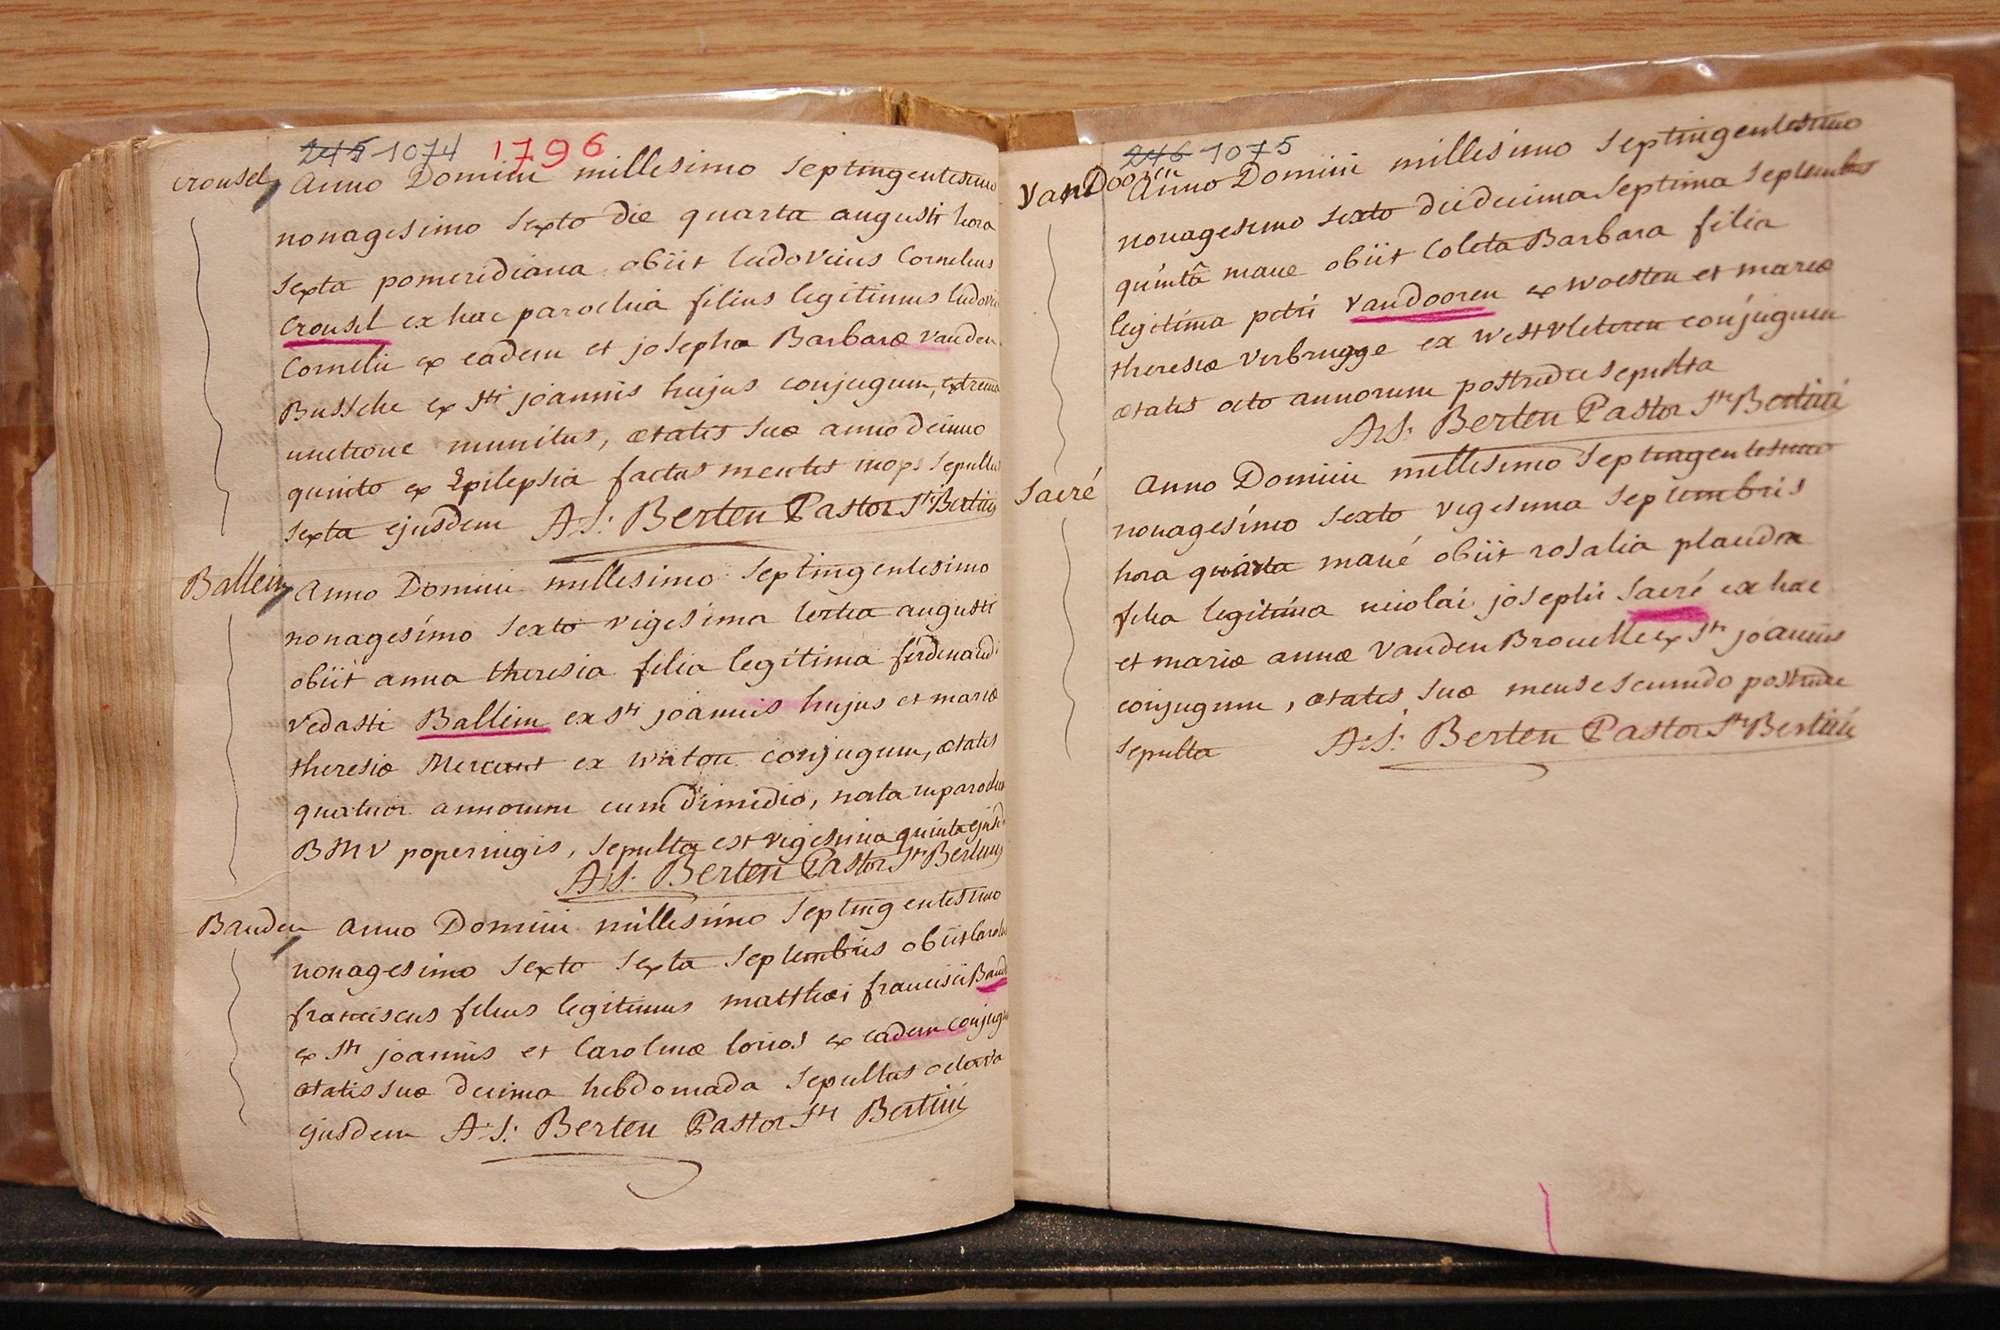 245 1074 1796
Crousel Anno Domini millesimo septingentesimo
nonagesimo sexto die quarta augusti hora
sexta pomeridiana obiit ludovicus Cornelius
Crousel ex hac parochia filius legitimus ludovici
Cornelii ex eadem et josepha Barbaræ Vanden
Bussche ex sti joannis hujus conjugum, extrema
unctione munitus, ætatis suæ anno decimo
quinto ex Epilepsia factus mentis inops sepultus
sexta ejusdem A:S: Berten Pastor Sti Bertini
Ballein Anno Domini millesimo septingentesimo
nonagesimo sexto vigesima tertia augusti
obiit anna theresia filia legitima ferdinandi
vedasti Ballein ex sti joannis hujus et mariæ
theresiæ ex conjugum, ætatis
quatuor annorum cum dimidio, nata in parochia
BMV poperingis, sepulta est vigesima quinta ejusd
A:S: Berten Pastor Sti Bertini
Bauden anno Domini millesimo septingentesimo
nonagesimo sexto sexta septembris obiit Carolus
franciscus filius legitimus matthæi francisci Baud
ex sti joannis et Carolinæ ex eadem conjugu
ætatis suæ decima hebdomada sepultus octava
ejusdem A:S: Berten Pastor Sti Bertini
246 1075
VanDooren Anno Domini millesimo septingentesimo
nonagesimo sexto die decima septima septembris
quintâ mane obiit Coleta Barbara filia
legitima petri Vandooren ex woesten et mariæ
theresiæ verbrugge ex westvleteren conjugum
ætatis octo annorum postridie sepulta
A:S: Berten Pastor Sti Bertini
Sacré Anno Domini millesimo septingentesimo
nonagesimo sexto vigesima septembris
hora quarta mané obiit rosalia
filia legitima nicolai josephi Sacré ex hac
et mariæ annæ Vanden ex sti joannis
conjugum, ætatis suæ mense secundo postridie
sepulta A:S: Berten Pastor Sti Bertini